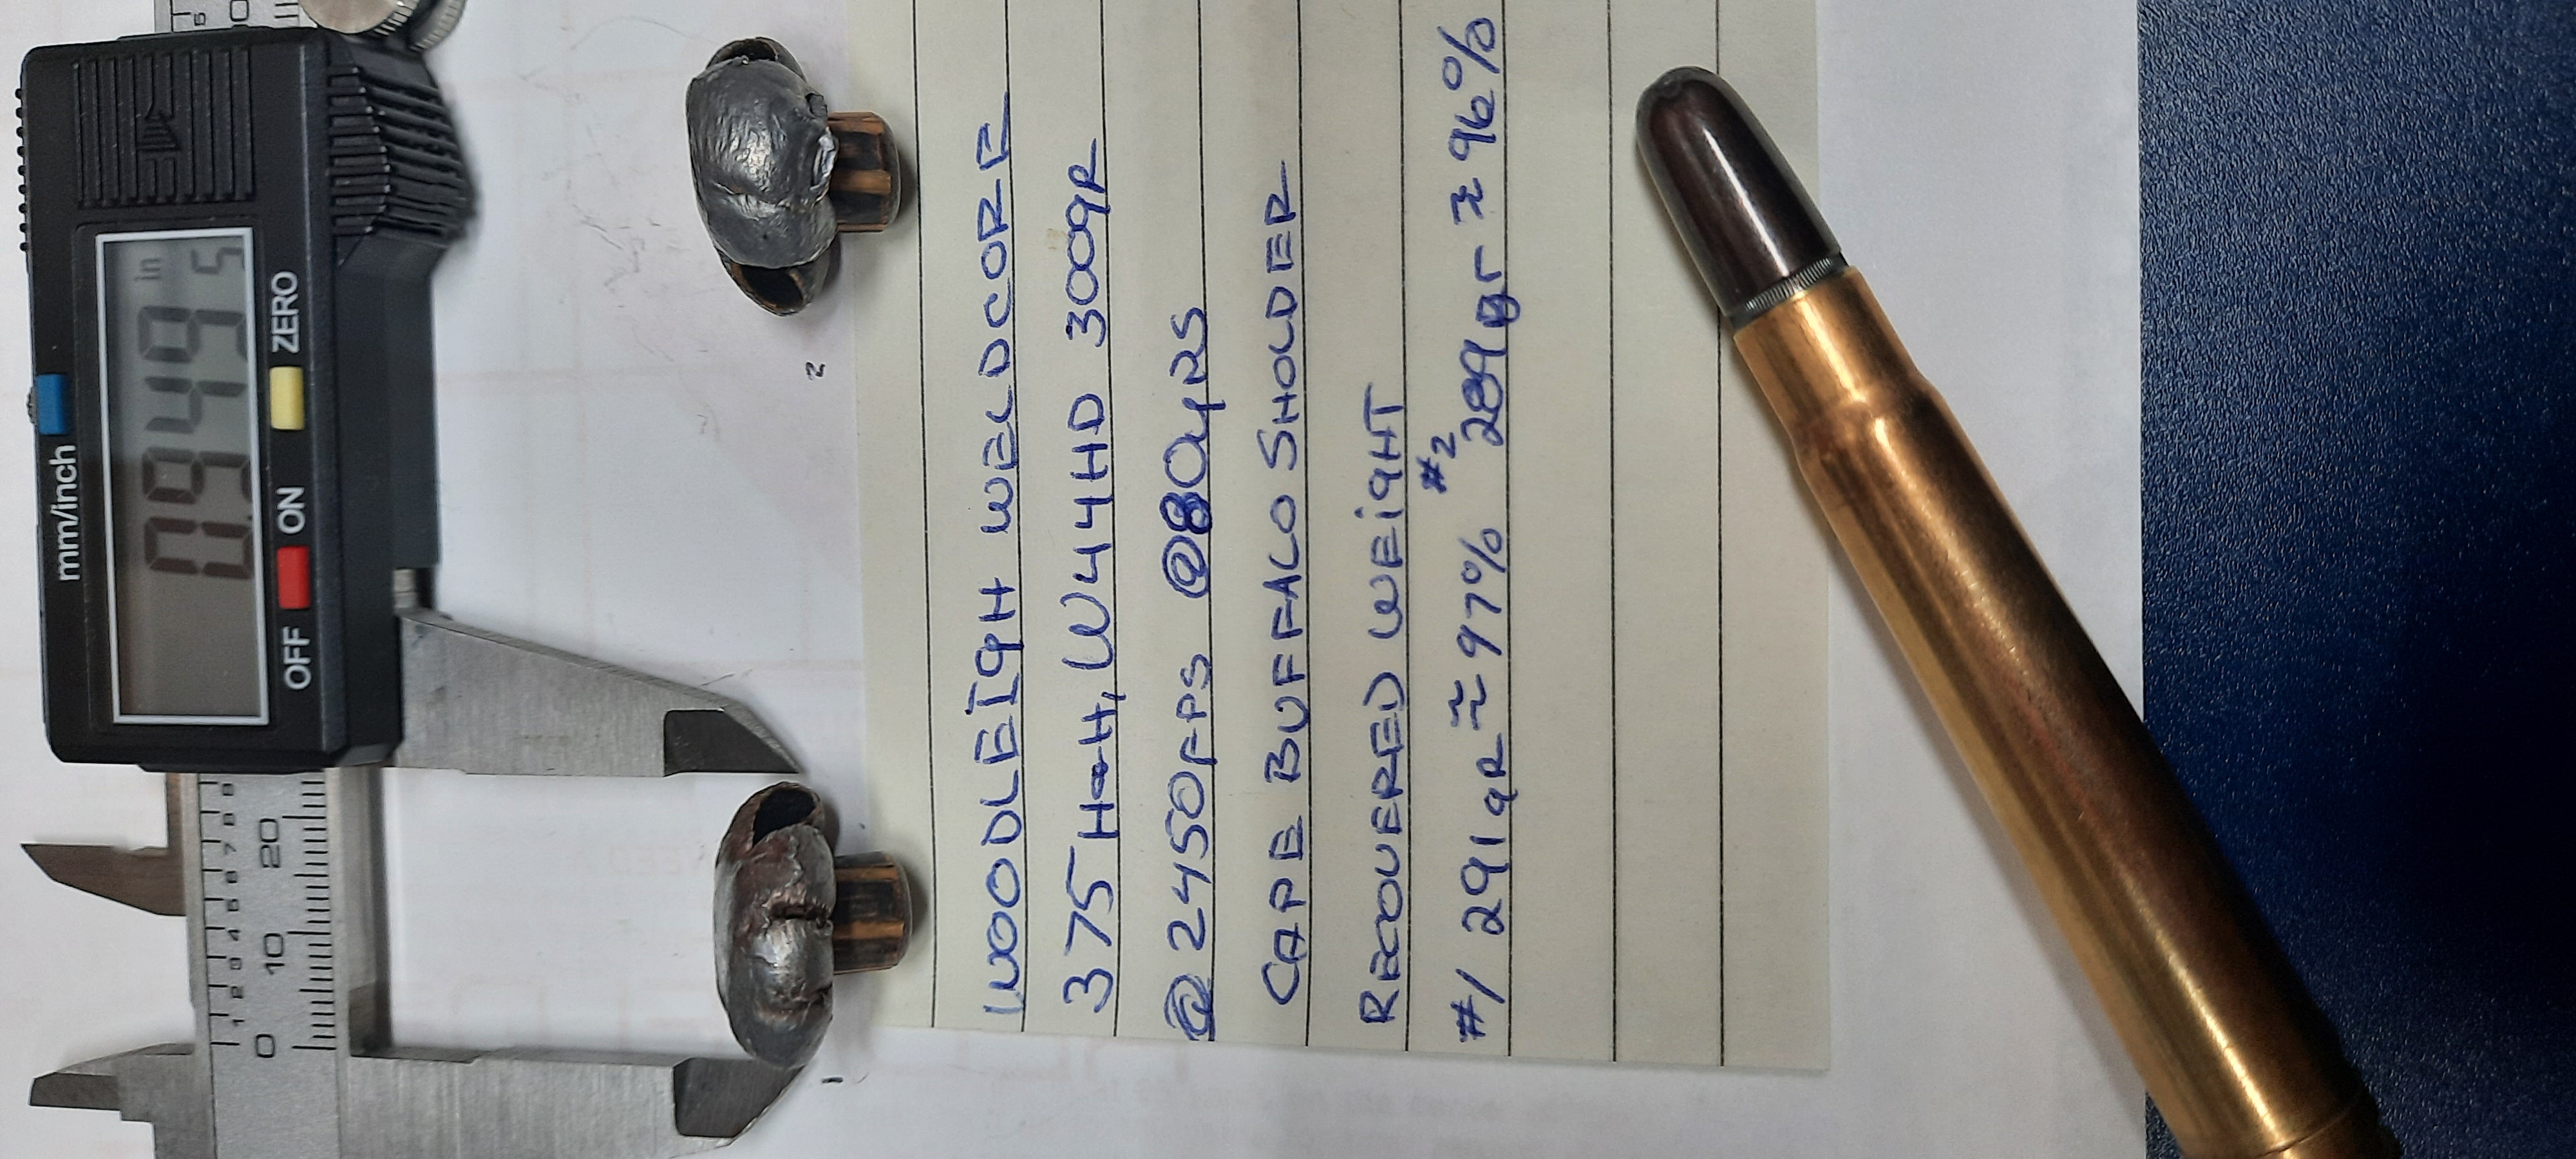 mm/inch
0.9495 in
OFF ON ZERO
1 2 3 4 5 6 7 8 9
0 10 20
1
2
WOODLEIGH WELDCORE
375 H&H, W44HD 300gR
@ 2450FPS @80yRS
CAPE BUFFALO SHOLDER
RECOVERED WEIGHT
#1 291gR ≈ 97% #2 289gr ≈ 96%